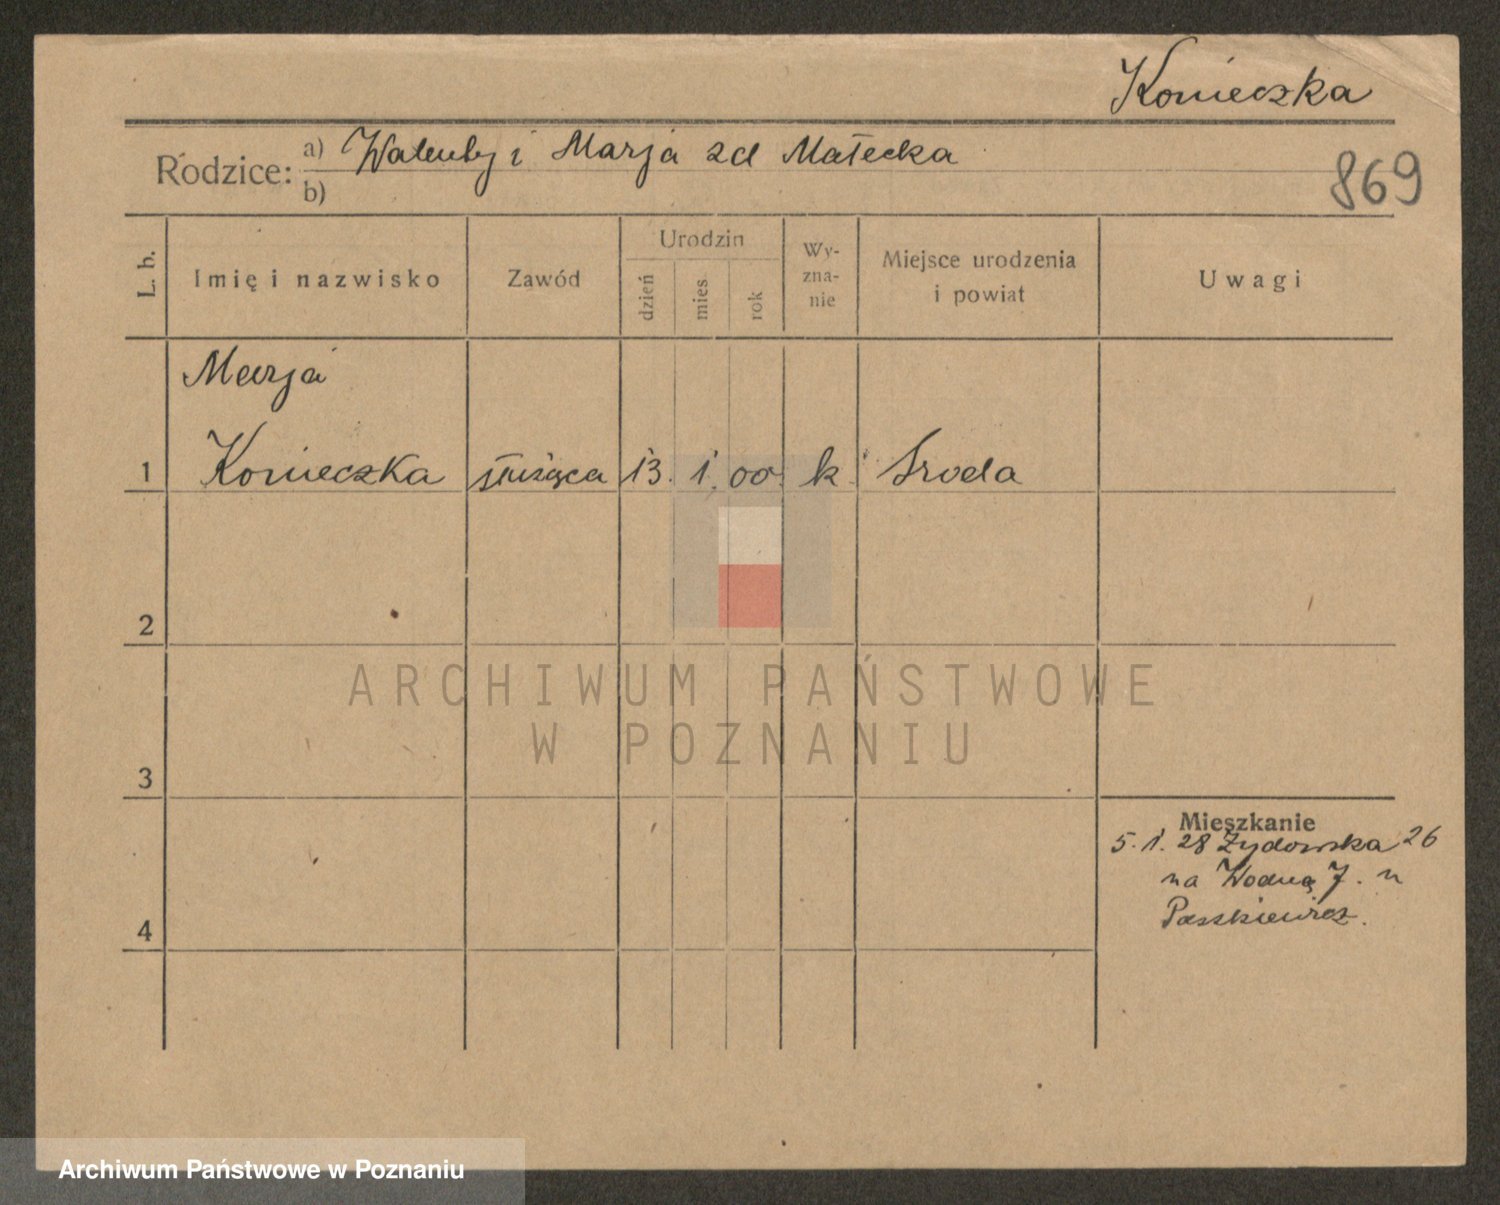 Konieczka
Rodzice: a) Walenty i Marja zd Małecka
b)
869
L. b.
Imię i nazwisko
Zawód
Urodzin
dzień
mies.
rok
Wy-
zna-
nie
Miejsce urodzenia
i powiat
Uwagi
Marja
1 Konieczka służąca 13. 1. 00. k. Sroda
2
3
4
Mieszkanie
5. 1. 28 Żydowska 26
na Wodną 7. u
Paszkiewicz.
ARCHIWUM PAŃSTWOWE
W POZNANIU
Archiwum Państwowe w Poznaniu